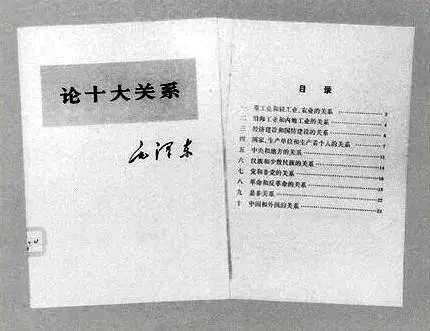 论十大关系
毛泽东
目录
一 重工业和轻工业、农业的关系 2
二 沿海工业和内地工业的关系 4
三 经济建设和国防建设的关系 6
四 国家、生产单位和生产者个人的关系 7
五 中央和地方的关系 11
六 汉族和少数民族的关系 14
七 党和非党的关系 16
八 革命和反革命的关系 18
九 是非关系 22
十 中国和外国的关系 24